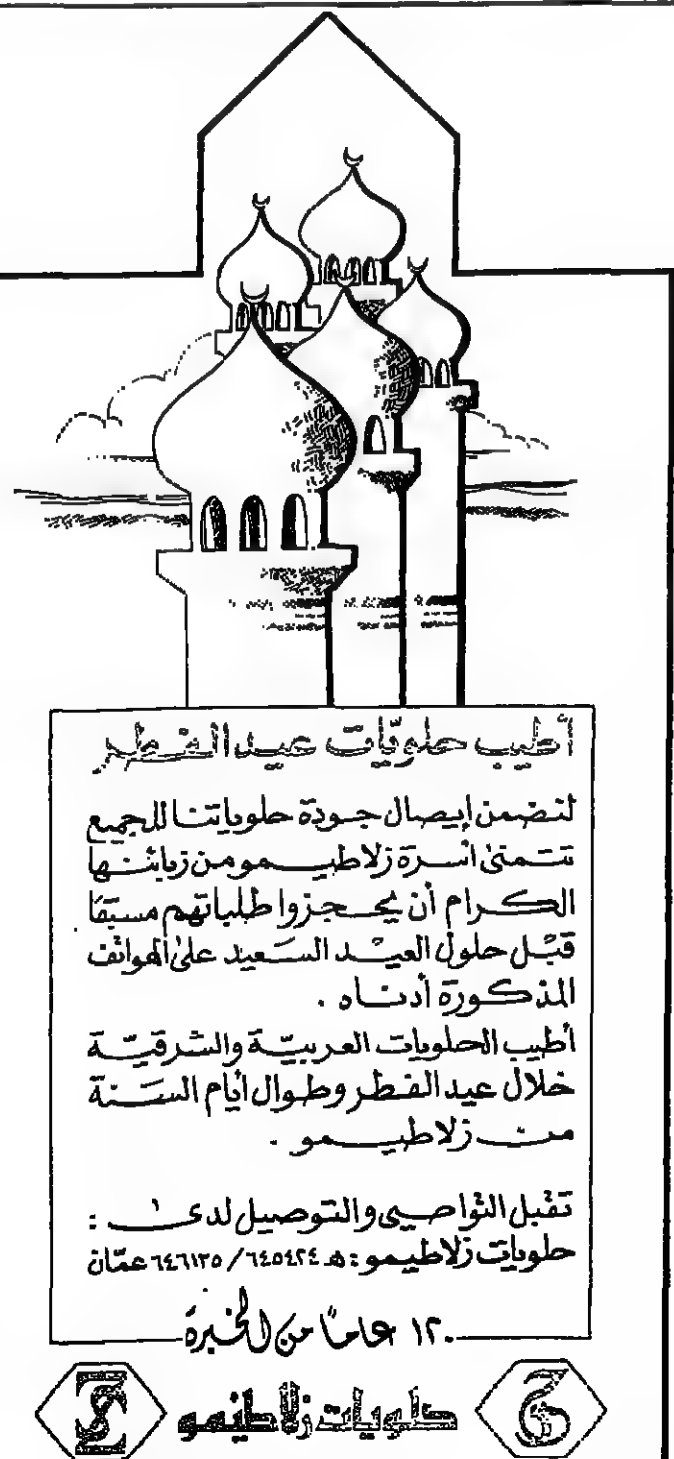 أطيب حلويّات عيد الفطر
لنضمن إيصال جودة حلوياتنا للجميع
تتمنى أسرة زلاطيمو من زبائنها
الكرام أن يحجزوا طلباتهم مسبقاً
قبل حلول العيد السعيد على الهواتف
المذكورة أدناه .
أطيب الحلويات العربيّة والشرقيّة
خلال عيد الفطر وطوال أيام السنة
من زلاطيمو .
تقبل التواصي والتوصيل لدى :
حلويات زلاطيمو : هـ ٦٤٥٤٢٤ / ٦٤٦١٢٥ عمّان
١٢٠ عاماً من الخبرة
حلويات زلاطيمو